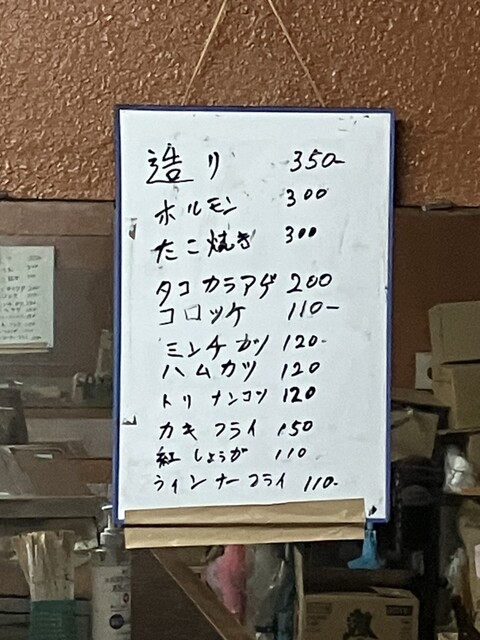 造り 350-
ホルモン 300
たこ焼き 300
タコカラアゲ 200
コロッケ 110-
ミンチカツ 120-
ハムカツ 120
トリナンコツ 120
カキフライ 150
紅しょうが 110
ウィンナーフライ 110-